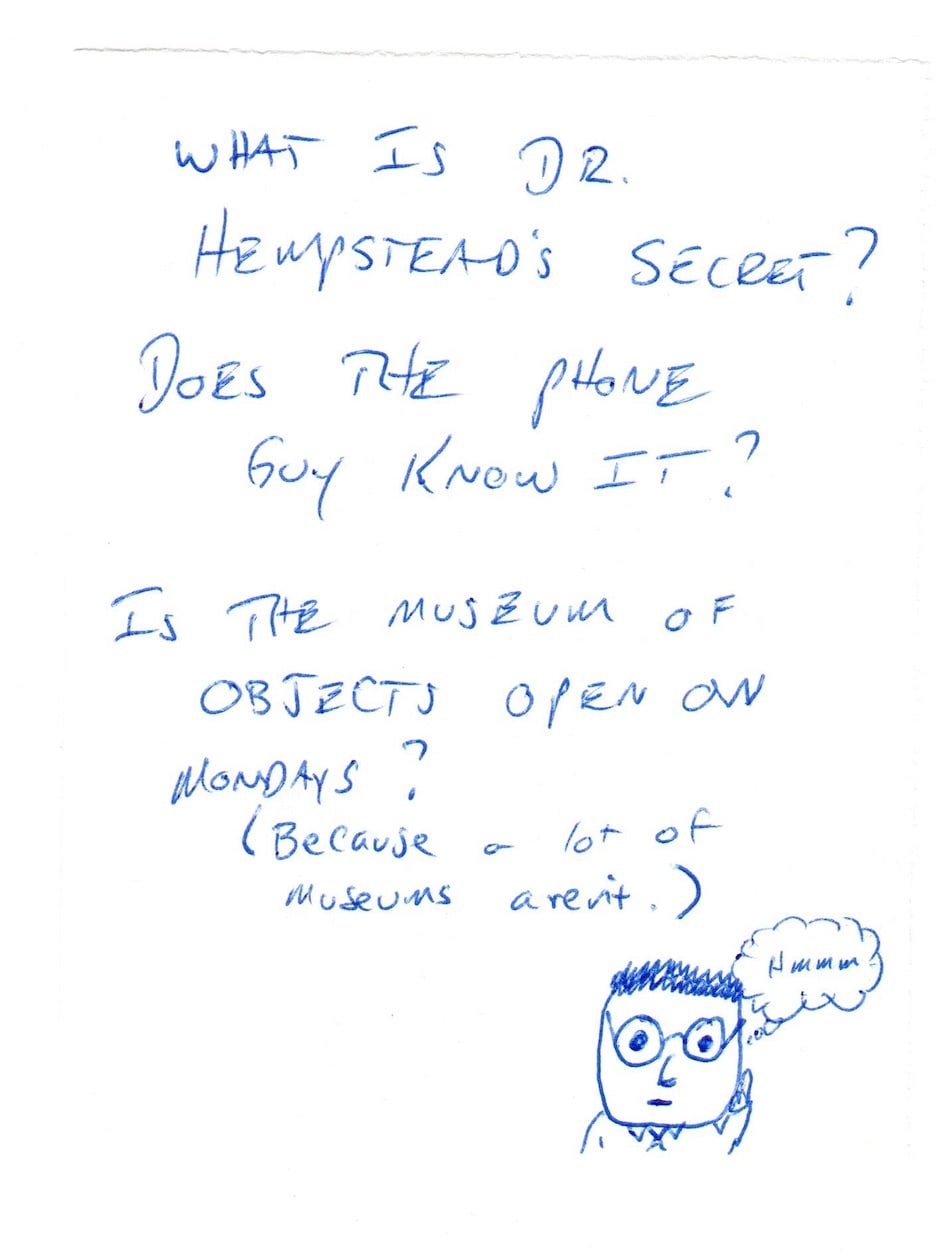 WHAT IS DR.
HEMPSTEAD'S SECRET?
DOES THE PHONE
GUY KNOW IT?
IS THE MUSEUM OF
OBJECTS OPEN ON
MONDAYS?
(Because a lot of
museums aren't.)
Hmmm